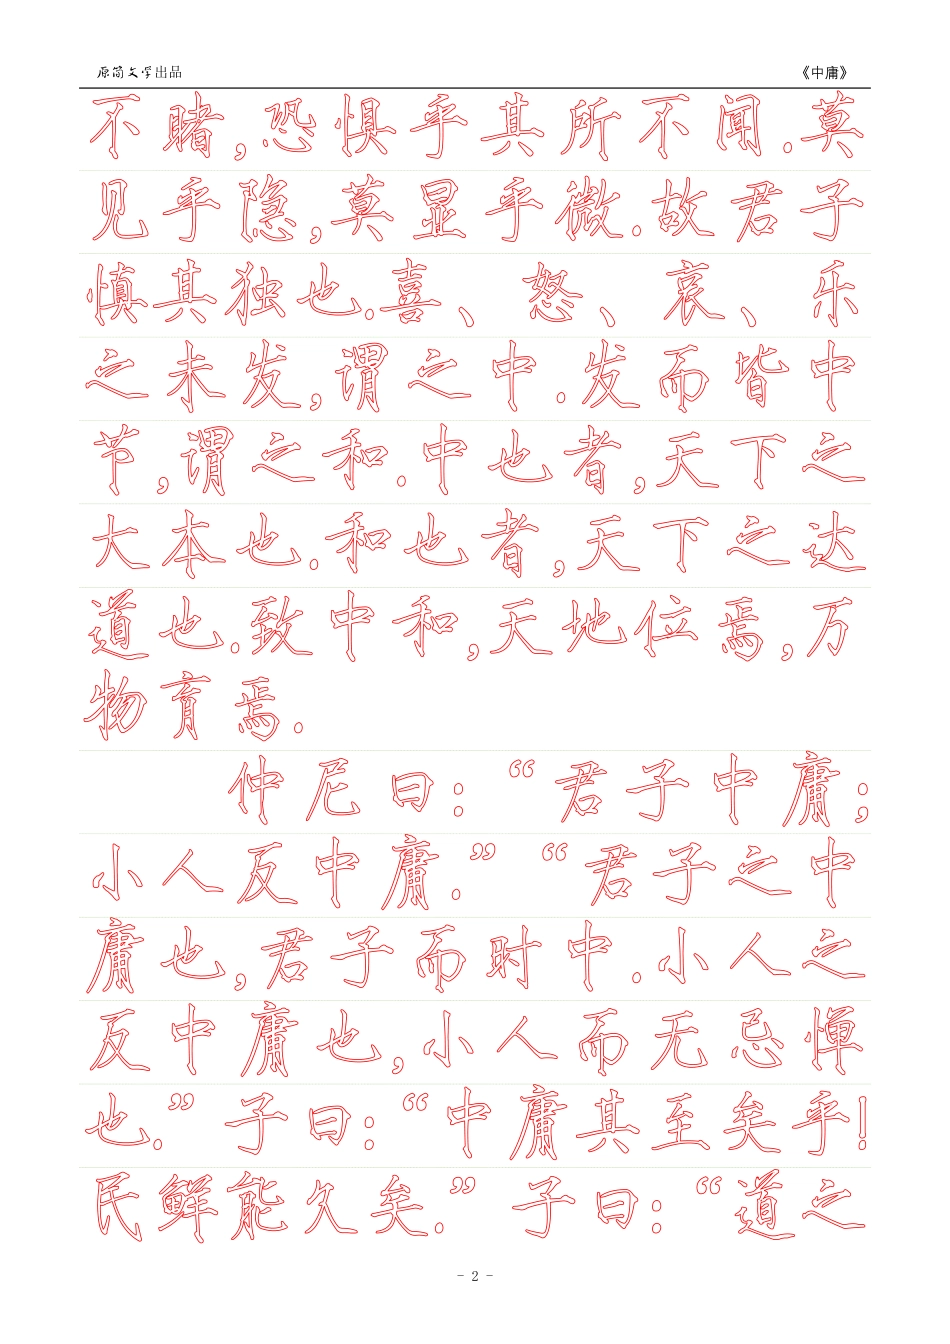 原简文学出品 《中庸》
不睹,恐惧乎其所不闻.莫
见乎隐,莫显乎微.故君子
慎其独也.喜、怒、哀、乐
之未发,谓之中.发而皆中
节,谓之和.中也者,天下之
大本也.和也者,天下之达
道也.致中和,天地位焉,万
物育焉.
仲尼曰:“君子中庸;
小人反中庸.”“君子之中
庸也,君子而时中.小人之
反中庸也,小人而无忌惮
也.”子曰:“中庸其至矣乎!
民鲜能久矣.”子曰:“道之
- 2 -